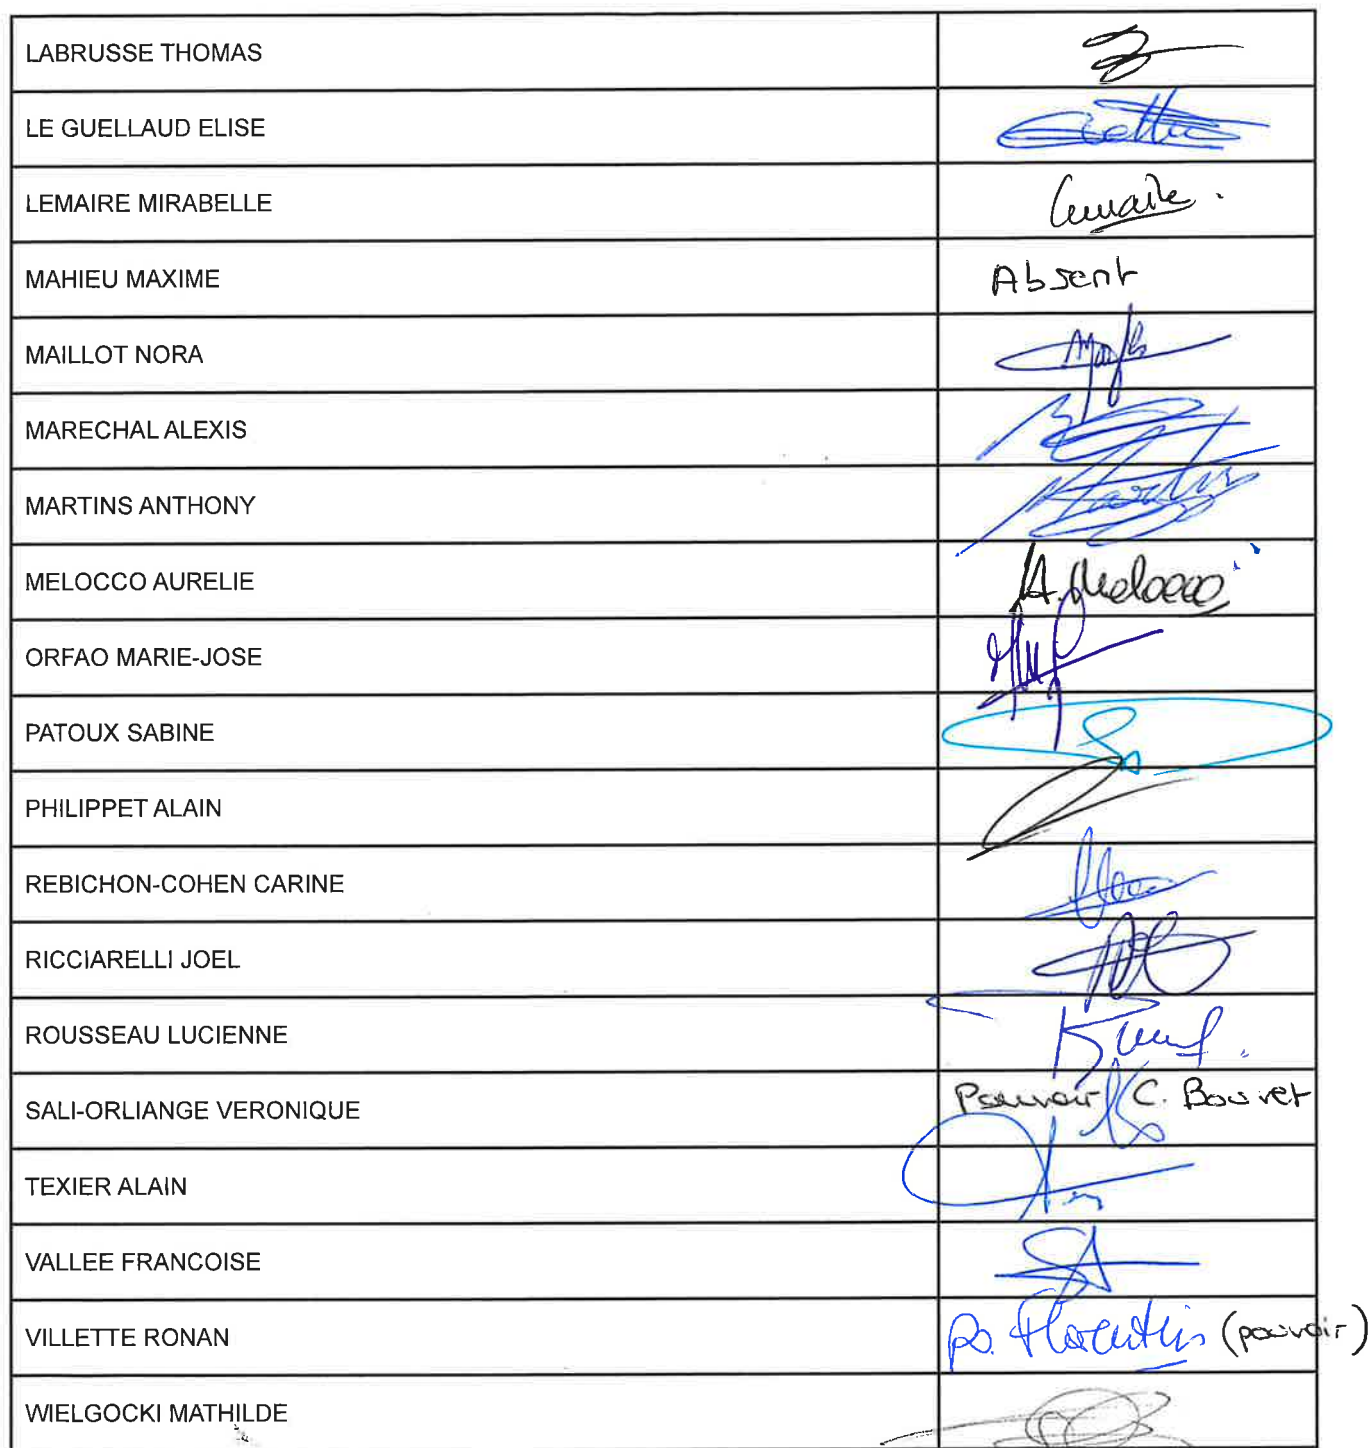 LABRUSSE THOMAS
LE GUELLAUD ELISE
LEMAIRE MIRABELLE Lemaire.
MAHIEU MAXIME Absent
MAILLOT NORA
MARECHAL ALEXIS
MARTINS ANTHONY Martins
MELOCCO AURELIE A. Melocco
ORFAO MARIE-JOSE
PATOUX SABINE
PHILIPPET ALAIN
REBICHON-COHEN CARINE
RICCIARELLI JOEL
ROUSSEAU LUCIENNE
SALI-ORLIANGE VERONIQUE Pouvoir C. Bouvet
TEXIER ALAIN
VALLEE FRANCOISE
VILLETTE RONAN po. Florentin (pouvoir)
WIELGOCKI MATHILDE